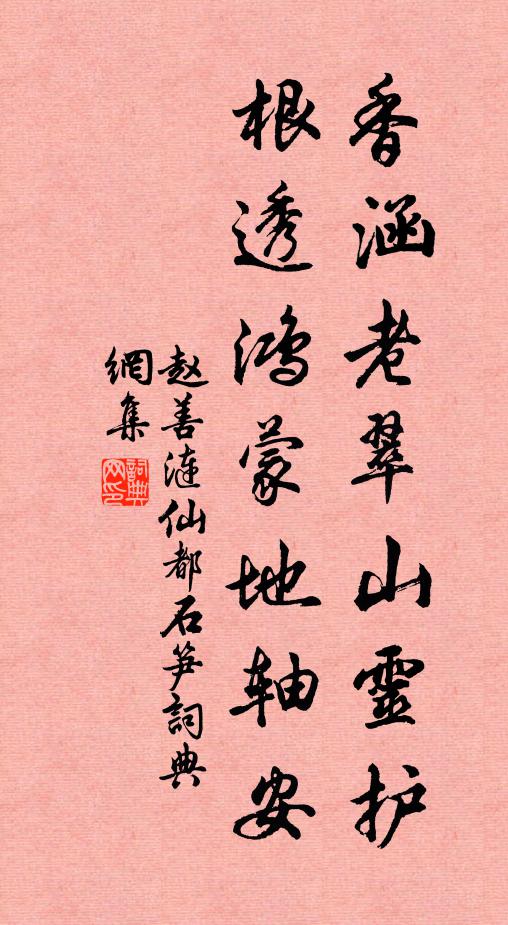 香涵老翠山靈护
根透鸿蒙地轴安
赵善涟仙都石笋詞典
網集
詞典
网印